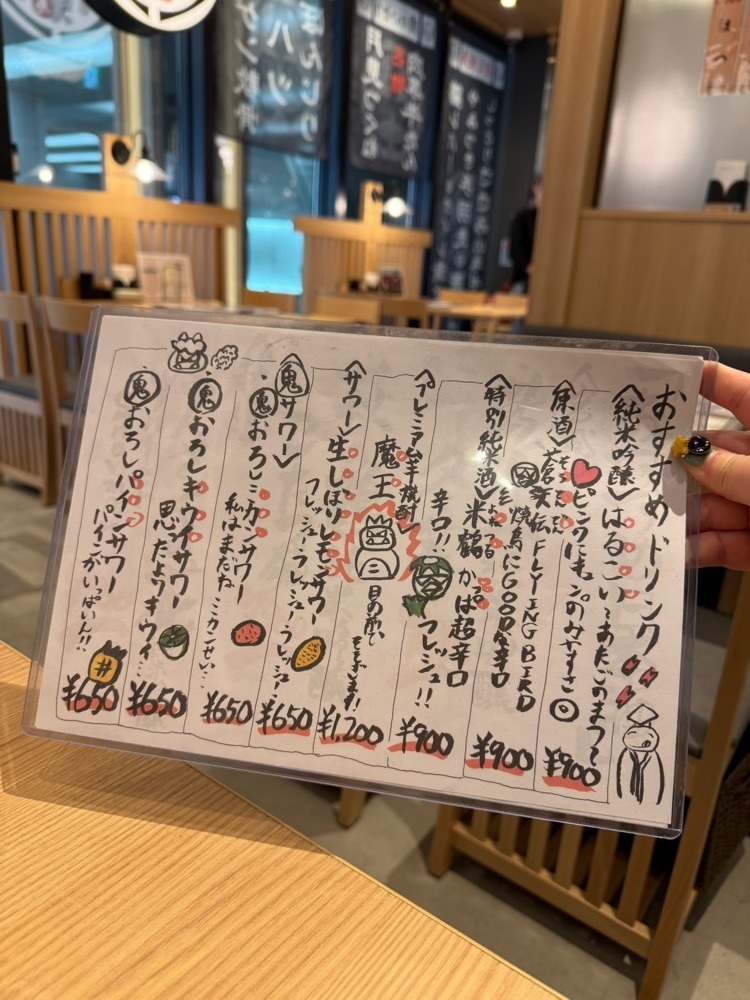 おすすめドリンク
〈純米吟醸〉はるこい てあたごのまつて
ピンクにモモのみやすさ
¥900
〈原酒〉大倉 FLYING BIRD
焼鳥にGOODな辛口
¥900
〈特別純米酒〉米鶴 かっぱ超辛口
辛口!! フレッシュ!!
¥900
〈プレミアム芋焼酎〉
魔王
目の前で
そそぎます!
¥1,200
〈サワー〉生しぼりレモンサワー
フレッシュ・フレッシュ・フレッシュ・
¥650
〈鬼サワー〉
鬼おろしミカンサワー
私はまだね ミカンせい…
¥650
鬼おろしキウイサワー
思いだよりキウイ…
¥650
鬼おろしパインサワー
パインがいっぱいん!!
¥650
ぼんじり
ハツ
月見つくね